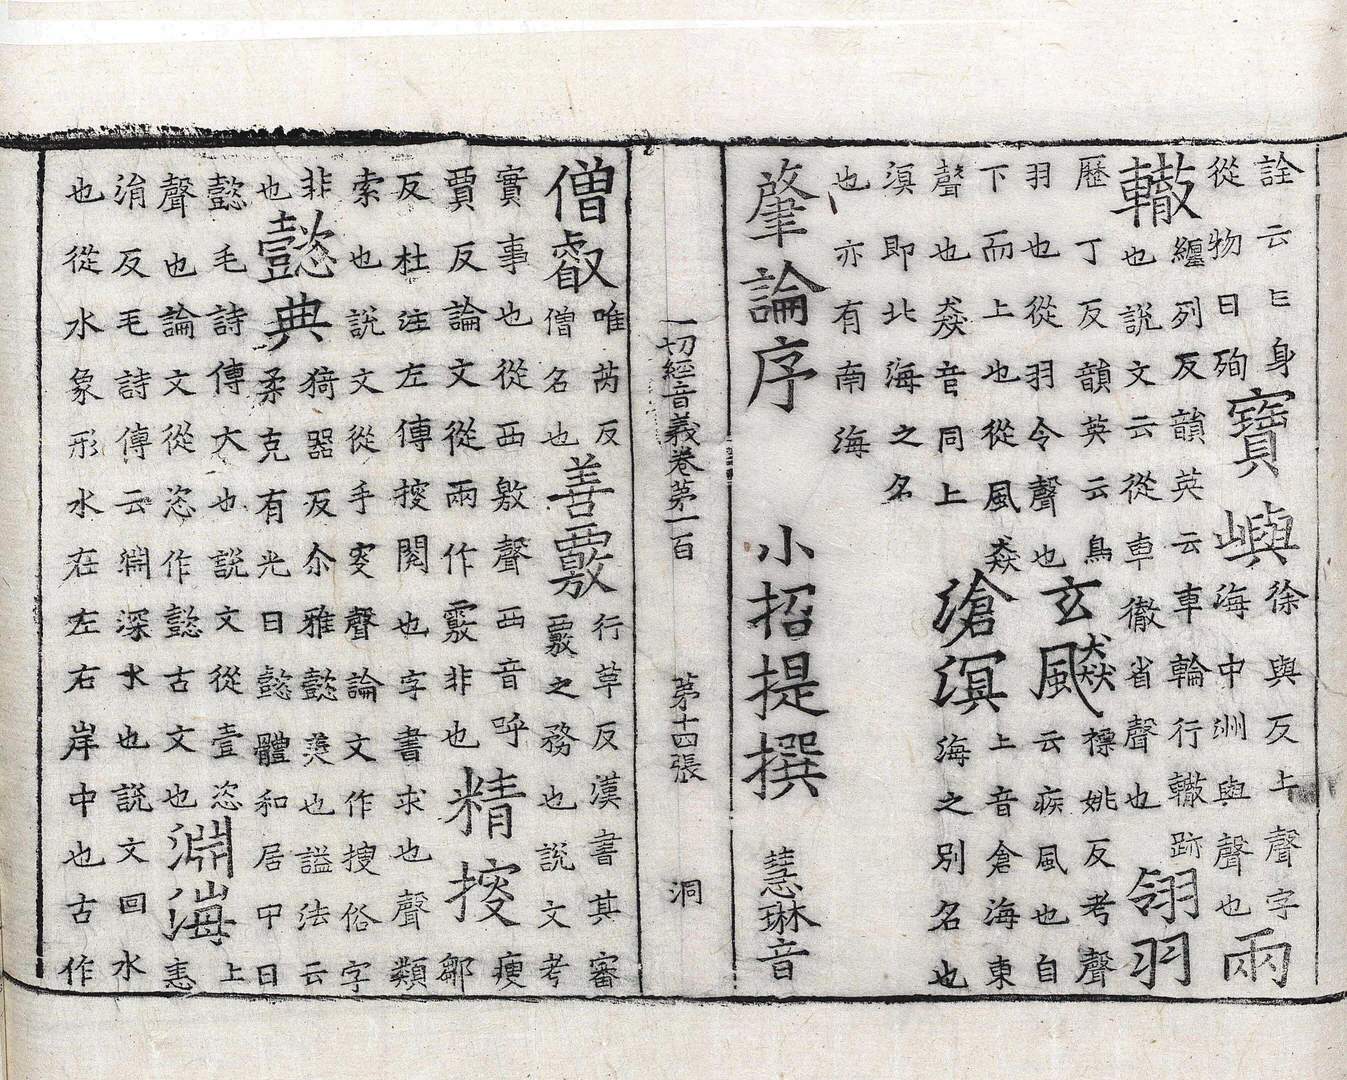 詮云亡身從物曰殉寶嶼徐與反上聲字海中洲與聲也兩
轍纏列反韻英云車輪行轍跡也說文云從車徹省聲也翎羽
歷丁反韻英云鳥羽也從羽令聲也玄飆褾姚反考聲云疾風也自
下而上也從風猋聲也猋音同上滄溟上音倉海東海之別名也
溟即北海之名也亦有南海
肇論序　小招提撰　慧琳音
一切經音義卷苐一百　苐十四張　洞
僧叡唯芮反僧名也善覈行革反漢書其審覈之務也說文考
實事也從襾敫聲襾音呼賈反論文從兩作覈非也精搜瘦鄒
反杜注左傳搜閱也字書求也聲類索也說文從手叜聲論文作搜俗字
非也懿典猗器反尒雅懿羙也謚法云柔克有光曰懿體和居中曰
懿毛詩傳大也說文從壹恣聲也論文從恣作懿古文也淵海上恚
涓反毛詩傳云淵深水也說文回水也從水象形水在左右岸中也古作